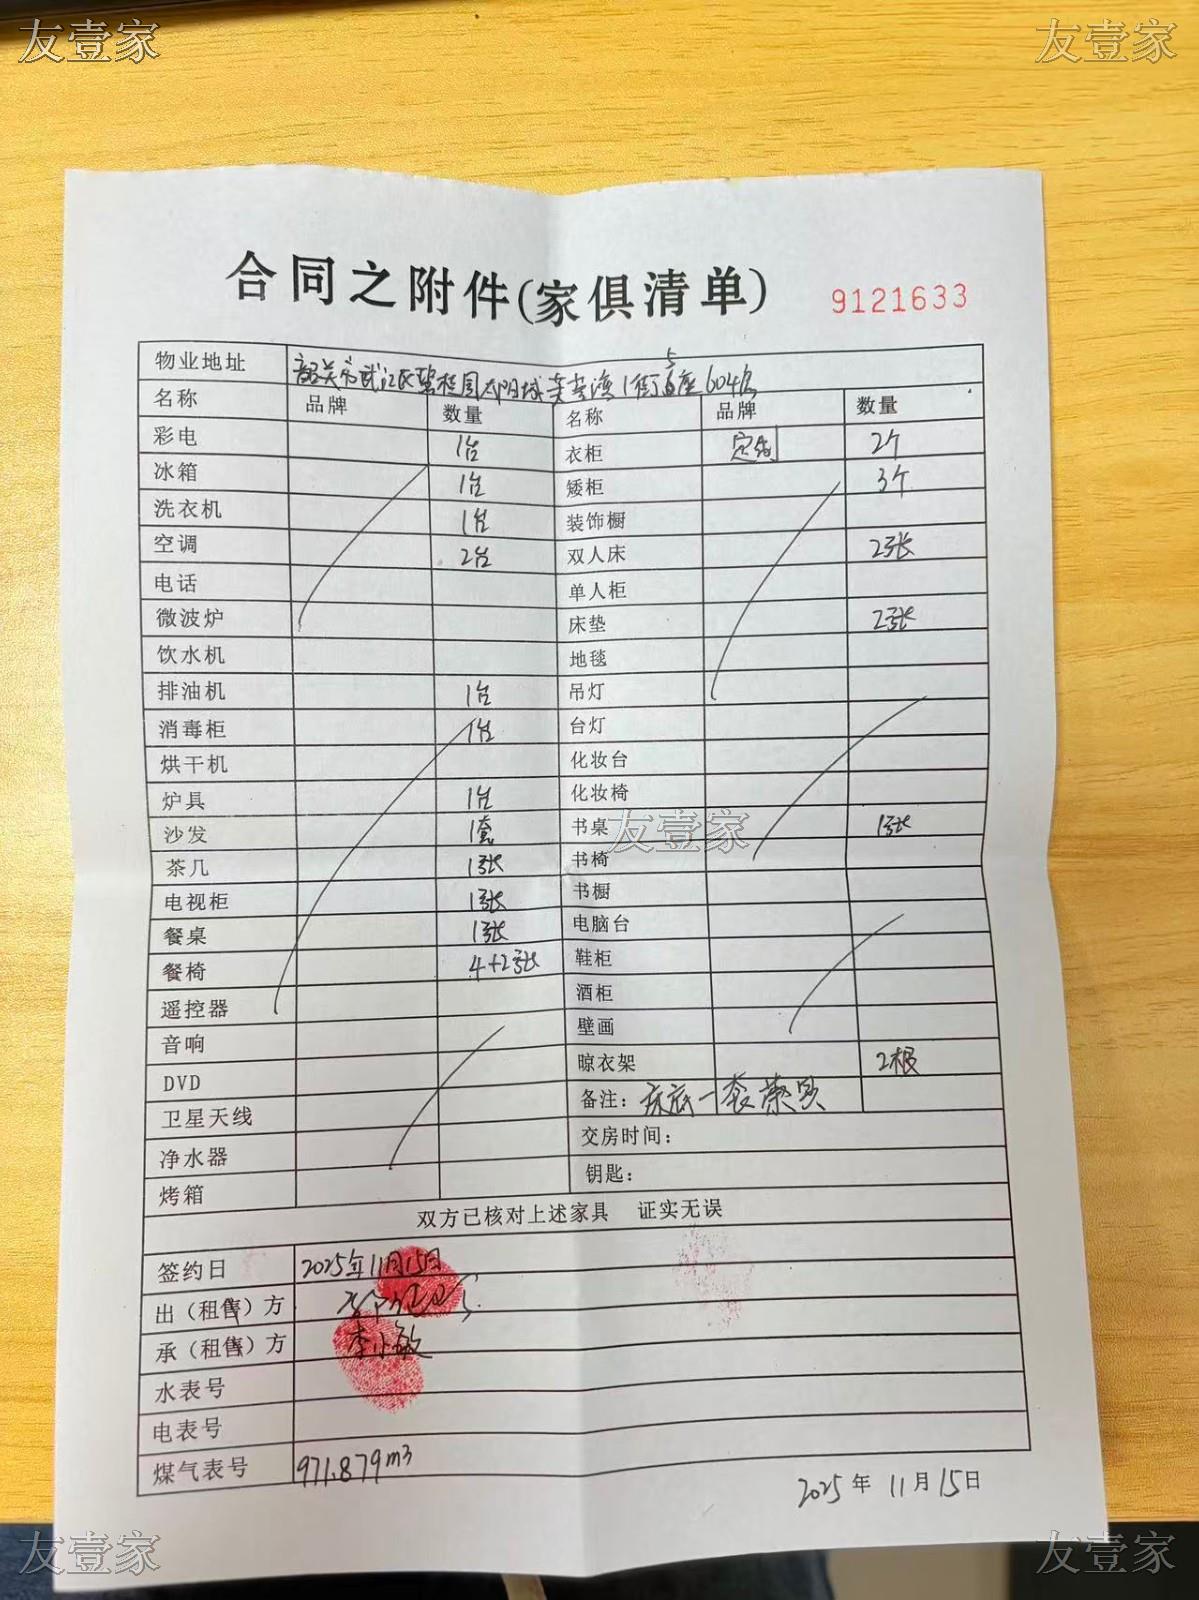 友壹家 友壹家
合同之附件(家俱清单) 9121633
物业地址 韶关市武江区碧桂园太阳城芙蓉湾1街5座604房
名称 品牌 数量 名称 品牌 数量
彩电 1台 衣柜 定制 2个
冰箱 1台 矮柜 3个
洗衣机 1台 装饰橱
空调 2台 双人床 2张
电话 单人柜
微波炉 床垫 2张
饮水机 地毯
排油机 1台 吊灯
消毒柜 1台 台灯
烘干机 化妆台
炉具 1台 化妆椅
沙发 1套 书桌 1张
友壹家
茶几 1张 书椅
电视柜 1张 书橱
餐桌 1张 电脑台
餐椅 4+2张 鞋柜
遥控器 酒柜
音响 壁画
DVD 晾衣架 2根
卫星天线 备注：
净水器 交房时间：
烤箱 钥匙：
双方已核对上述家具 证实无误
签约日 2025年11月15日
出（租售）方
承（租售）方 李小敏
水表号
电表号
煤气表号 971.879m3
2025年 11月15日
友壹家 友壹家